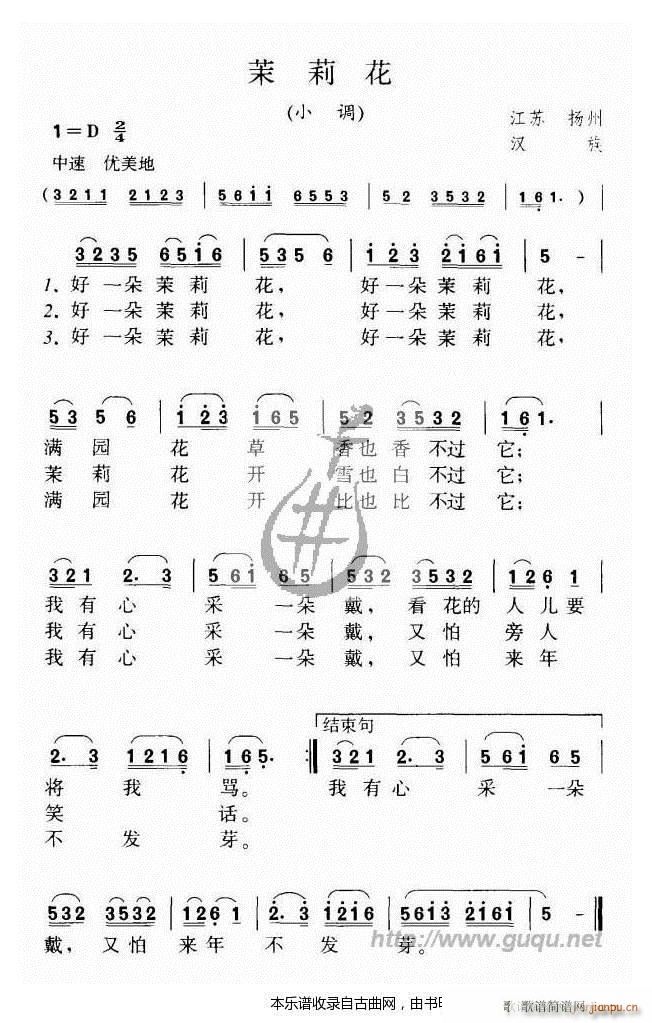 茉 莉 花
(小 调)
1=D 2/4
江苏 扬州
汉 族
中速 优美地
(3211 2123 | 561i 6553 | 52 3532 | 161. )
3235 6516 | 5356 | 123 2161 | 5 -
1. 好一朵茉莉 花, 好一朵茉莉 花,
2. 好一朵茉莉 花, 好一朵茉莉 花,
3. 好一朵茉莉 花, 好一朵茉莉 花,
53 56 | 123 165 | 52 3532 | 161.
满园 花 草 香也香不过它;
茉莉 花 开 雪也白不过它;
满园 花 开 比也比不过它;
321 2.3 | 561 65 | 532 3532 | 126 1
我有心 采 一朵戴, 看花的 人儿要
我有心 采 一朵戴, 又怕 旁人
我有心 采 一朵戴, 又怕 来年
结束句
2.3 1216 | 165. :‖ 321 2.3 | 561 65
将 我 骂。 我有心 采 一朵
笑 话。
不 发 芽。
532 3532 | 126 1 | 2.3 1216 | 5613 2161 | 5 - ‖
戴, 又怕 来年 不 发 芽。
http://www.guqu.net
本乐谱收录自古曲网，由书
歌谱简谱网
jianpu.cn